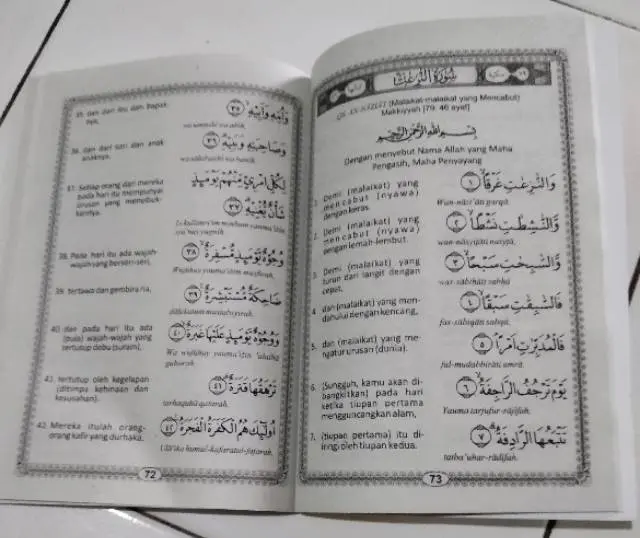 35. dan dari ibu dan bapak-
nya,
وَاُمِّهٖ وَاَبِيْهِۙ ٣٥
wa ummihī wa abīh.
36. dan dari istri dan anak-
anaknya.
وَصَاحِبَتِهٖ وَبَنِيْهِۗ ٣٦
wa sāhibatihī wa banīh.
37. Setiap orang dari mereka
pada hari itu mempunyai
urusan yang menyibuk-
kannya.
لِكُلِّ امْرِئٍ مِّنْهُمْ يَوْمَىِٕذٍ
شَأْنٌ يُّغْنِيْهِۗ ٣٧
38. Pada hari itu ada wajah-
wajah yang berseri-seri,
وُجُوْهٌ يَّوْمَىِٕذٍ مُّسْفِرَةٌۙ ٣٨
Wujūhuy yauma'iżim musfirah.
39. tertawa dan gembira ria,
ضَاحِكَةٌ مُّسْتَبْشِرَةٌۚ ٣٩
ḍāḥikatum mustabsyirah.
40. dan pada hari itu ada
(pula) wajah-wajah yang
tertutup debu (suram),
وَوُجُوْهٌ يَّوْمَىِٕذٍ عَلَيْهَا غَبَرَةٌۙ ٤٠
Wa wujūhuy yauma'iżin 'alaihā
gabarah.
41. tertutup oleh kegelapan
(ditimpa kehinaan dan
kesusahan).
تَرْهَقُهَا قَتَرَةٌۗ ٤١
tarhaquhā qatarah.
42. Mereka itulah orang-
orang kafir yang durhaka.
اُولٰۤىِٕكَ هُمُ الْكَفَرَةُ الْفَجَرَةُ ٤٢
Ulā'ika humul-kafaratul-fajarah.
72
سُوْرَةُ النّٰزِعٰتِ
QS. AN-NĀZI'ĀT (Malaikat-malaikat yang Mencabut)
Makkiyyah [79: 46 ayat]
بِسْمِ اللّٰهِ الرَّحْمٰنِ الرَّحِيْمِ
Dengan menyebut Nama Allah yang Maha
Pengasih, Maha Penyayang
1. Demi (malaikat) yang
mencabut (nyawa)
dengan keras.
وَالنّٰزِعٰتِ غَرْقًاۙ ١
Wan-nāzi'āti garqā.
2. Demi (malaikat) yang
mencabut (nyawa)
dengan lemah-lembut.
وَّالنّٰشِطٰتِ نَشْطًاۙ ٢
wan-nāsyiṭāti nasyṭā.
3. Demi (malaikat) yang
turun dari langit dengan
cepat,
وَّالسّٰبِحٰتِ سَبْحًاۙ ٣
was-sābiḥāti sabḥā
4. dan (malaikat) yang men-
dahului dengan kencang,
فَالسّٰبِقٰتِ سَبْقًاۙ ٤
fas-sābiqāti sabqā.
5. dan (malaikat) yang me-
ngatur urusan (dunia).
فَالْمُدَبِّرٰتِ اَمْرًاۘ ٥
ful-mudabbirāti amrā.
6. (Sungguh, kamu akan di-
bangkitkan) pada hari
ketika tiupan pertama
mengguncangkan alam,
يَوْمَ تَرْجُفُ الرَّاجِفَةُۙ ٦
Yauma tarjufur-rājifah.
7. (tiupan pertama) itu di-
iringi oleh tiupan kedua.
تَتْبَعُهَا الرَّادِفَةُۗ ٧
tatba'uhar-rādifah.
73